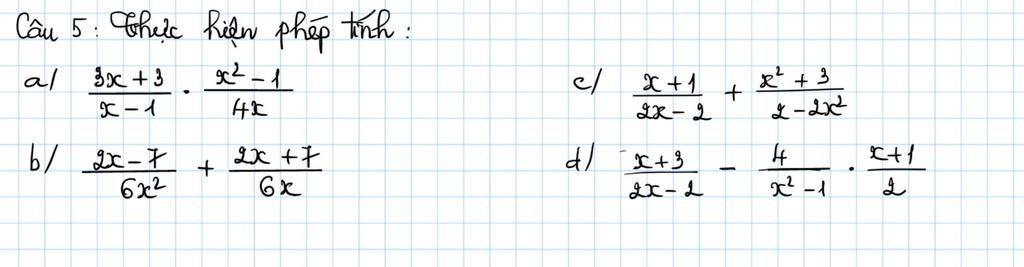 Câu 5: Thực hiện phép tính:
a/ \frac{3x+3}{x-1} \cdot \frac{x^2-1}{4x}
c/ \frac{x+1}{2x-2} + \frac{x^2+3}{2-2x^2}
b/ \frac{2x-7}{6x^2} + \frac{2x+7}{6x}
d/ \frac{x+3}{2x-2} - \frac{4}{x^2-1} \cdot \frac{x+1}{2}